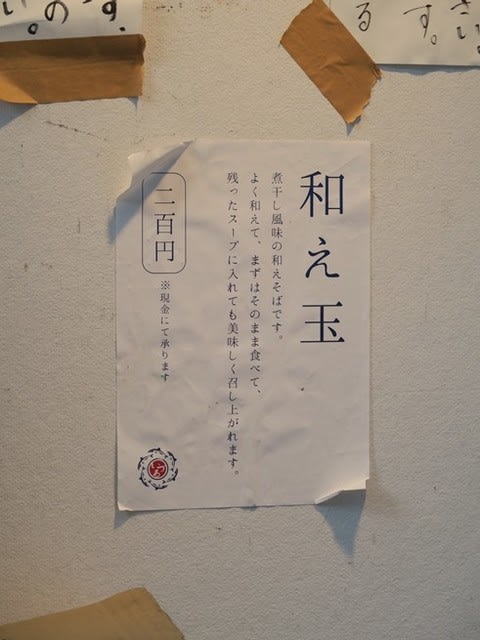 和え玉
煮干し風味の和えそばです。
よく和えて、まずはそのまま食べて、
残ったスープに入れても美味しく召し上がれます。
二百円
※現金にて承ります
さい。
する
す。
の
い。